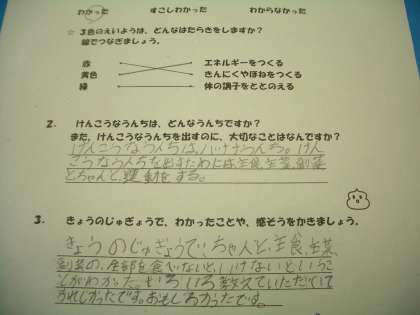 わかった　すこしわかった　わからなかった
☆ 3色のえいようは、どんなはたらきをしますか？
線でつなぎましょう。
赤　エネルギーをつくる
黄色　きんにくやほねをつくる
緑　体の調子をととのえる
2. けんこうなうんちは、どんなうんちですか？
また、けんこうなうんちを出すのに、大切なことはなんですか？
けんこうなうんちは、バナナうんち。けん
こうなうんちを出すためには主食、主菜、副菜
とちゃんと、運動をする。
3. きょうのじゅぎょうで、わかったことや、感そうをかきましょう。
きょうのじゅぎょうで、ちゃんと、主食、主菜、
副菜の、全部を食べないと、いけないということ
がわかった。いろいろ教えていただいて
うれしかったです。おもしろかったです。